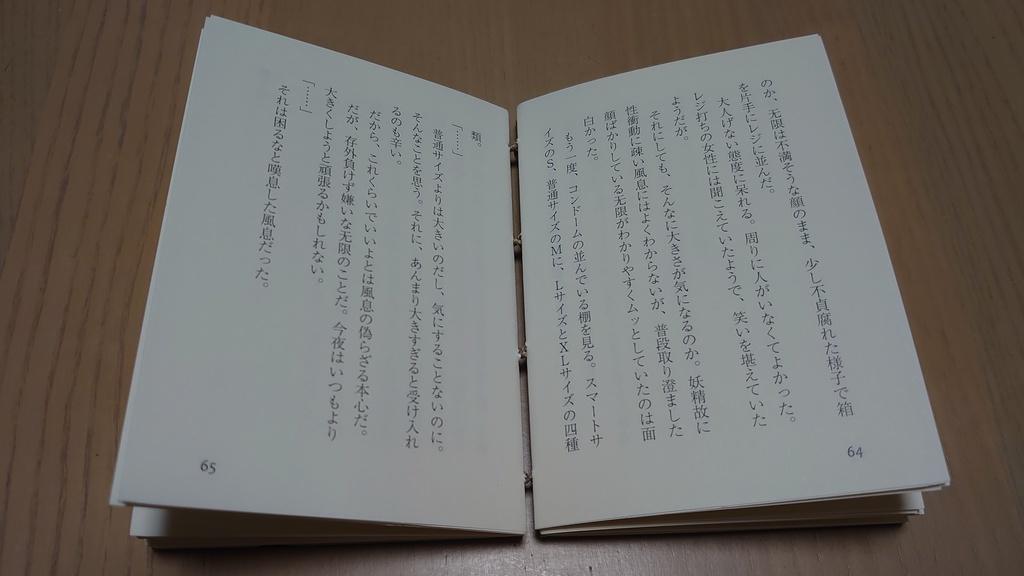 のか、无限は不満そうな顔のまま、少し不貞腐れた様子で箱
を片手にレジに並んだ。
大人げない態度に呆れる。周りに人がいなくてよかった。
レジ打ちの女性には聞こえていたようで、笑いを堪えていた
ようだが。
それにしても、そんなに大きさが気になるのか。妖精故に
性衝動に疎い風息にはよくわからないが、普段取り澄ました
顔ばかりしている无限がわかりやすくムッとしていたのは面
白かった。
もう一度、コンドームの並んでいる棚を見る。スマートサ
イズのS、普通サイズのMに、LサイズとXLサイズの四種
64
類。
「……」
普通サイズよりは大きいのだし、気にすることないのに。
そんなことを思う。それに、あんまり大きすぎると受け入れ
るのも辛い。
だから、これくらいでいいよとは風息の偽らざる本心だ。
だが、存外負けず嫌いな无限のことだ。今夜はいつもより
大きくしようと頑張るかもしれない。
「……」
それは困るなと嘆息した風息だった。
65